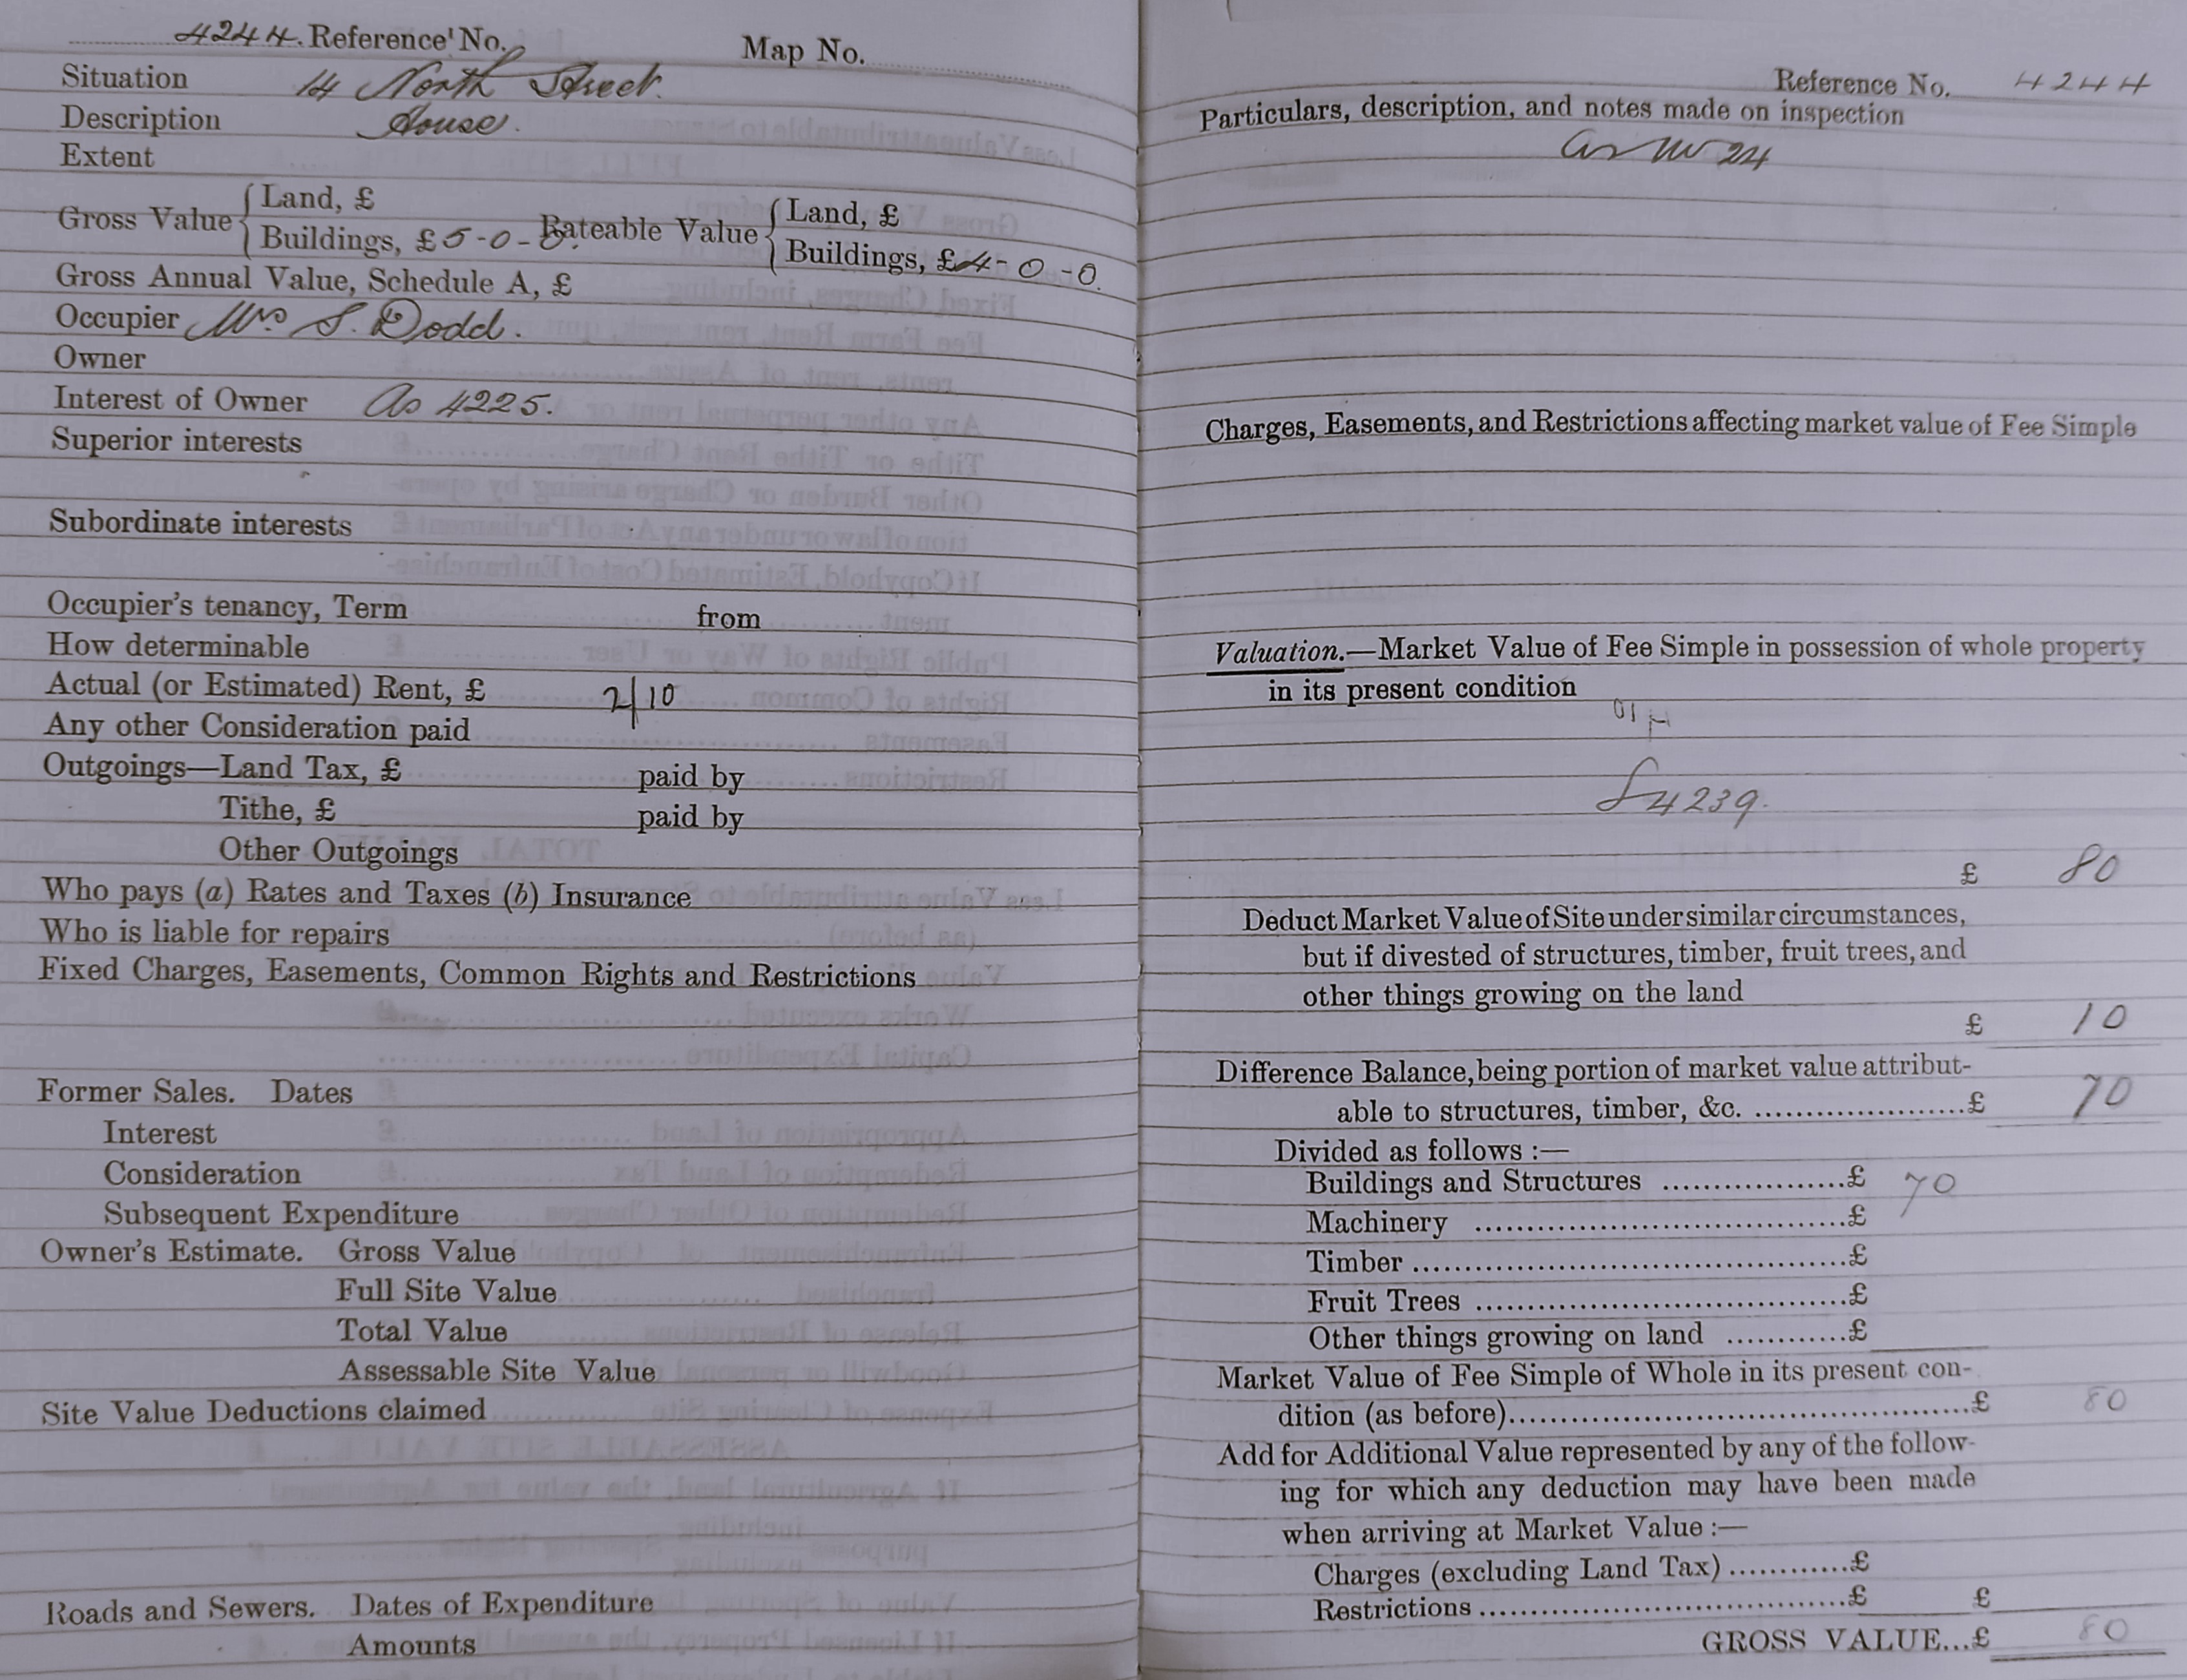 4244. Reference No.
Map No.
Situation 14 North Street.
Description House.
Extent
Gross Value { Land, £
Buildings, £5-0-0. Rateable Value { Land, £
Buildings, £4-0-0.
Gross Annual Value, Schedule A, £
Occupier Mrs S. Dodd.
Owner
Interest of Owner As 4225.
Superior interests
Subordinate interests
Occupier's tenancy, Term from
How determinable
Actual (or Estimated) Rent, £ 2/10
Any other Consideration paid
Outgoings—Land Tax, £ paid by
Tithe, £ paid by
Other Outgoings
Who pays (a) Rates and Taxes (b) Insurance
Who is liable for repairs
Fixed Charges, Easements, Common Rights and Restrictions
Former Sales. Dates
Interest
Consideration
Subsequent Expenditure
Owner's Estimate. Gross Value
Full Site Value
Total Value
Assessable Site Value
Site Value Deductions claimed
Roads and Sewers. Dates of Expenditure
Amounts
Reference No. 4244
Particulars, description, and notes made on inspection
as 24
Charges, Easements, and Restrictions affecting market value of Fee Simple
Valuation.—Market Value of Fee Simple in possession of whole property
in its present condition
4239.
£ 80
Deduct Market Value of Site under similar circumstances,
but if divested of structures, timber, fruit trees, and
other things growing on the land
£ 10
Difference Balance, being portion of market value attribut-
able to structures, timber, &c. £ 70
Divided as follows :—
Buildings and Structures £ 70
Machinery £
Timber £
Fruit Trees £
Other things growing on land £
Market Value of Fee Simple of Whole in its present con-
dition (as before) £ 80
Add for Additional Value represented by any of the follow-
ing for which any deduction may have been made
when arriving at Market Value :—
Charges (excluding Land Tax) £
Restrictions £ £
GROSS VALUE...£ 80